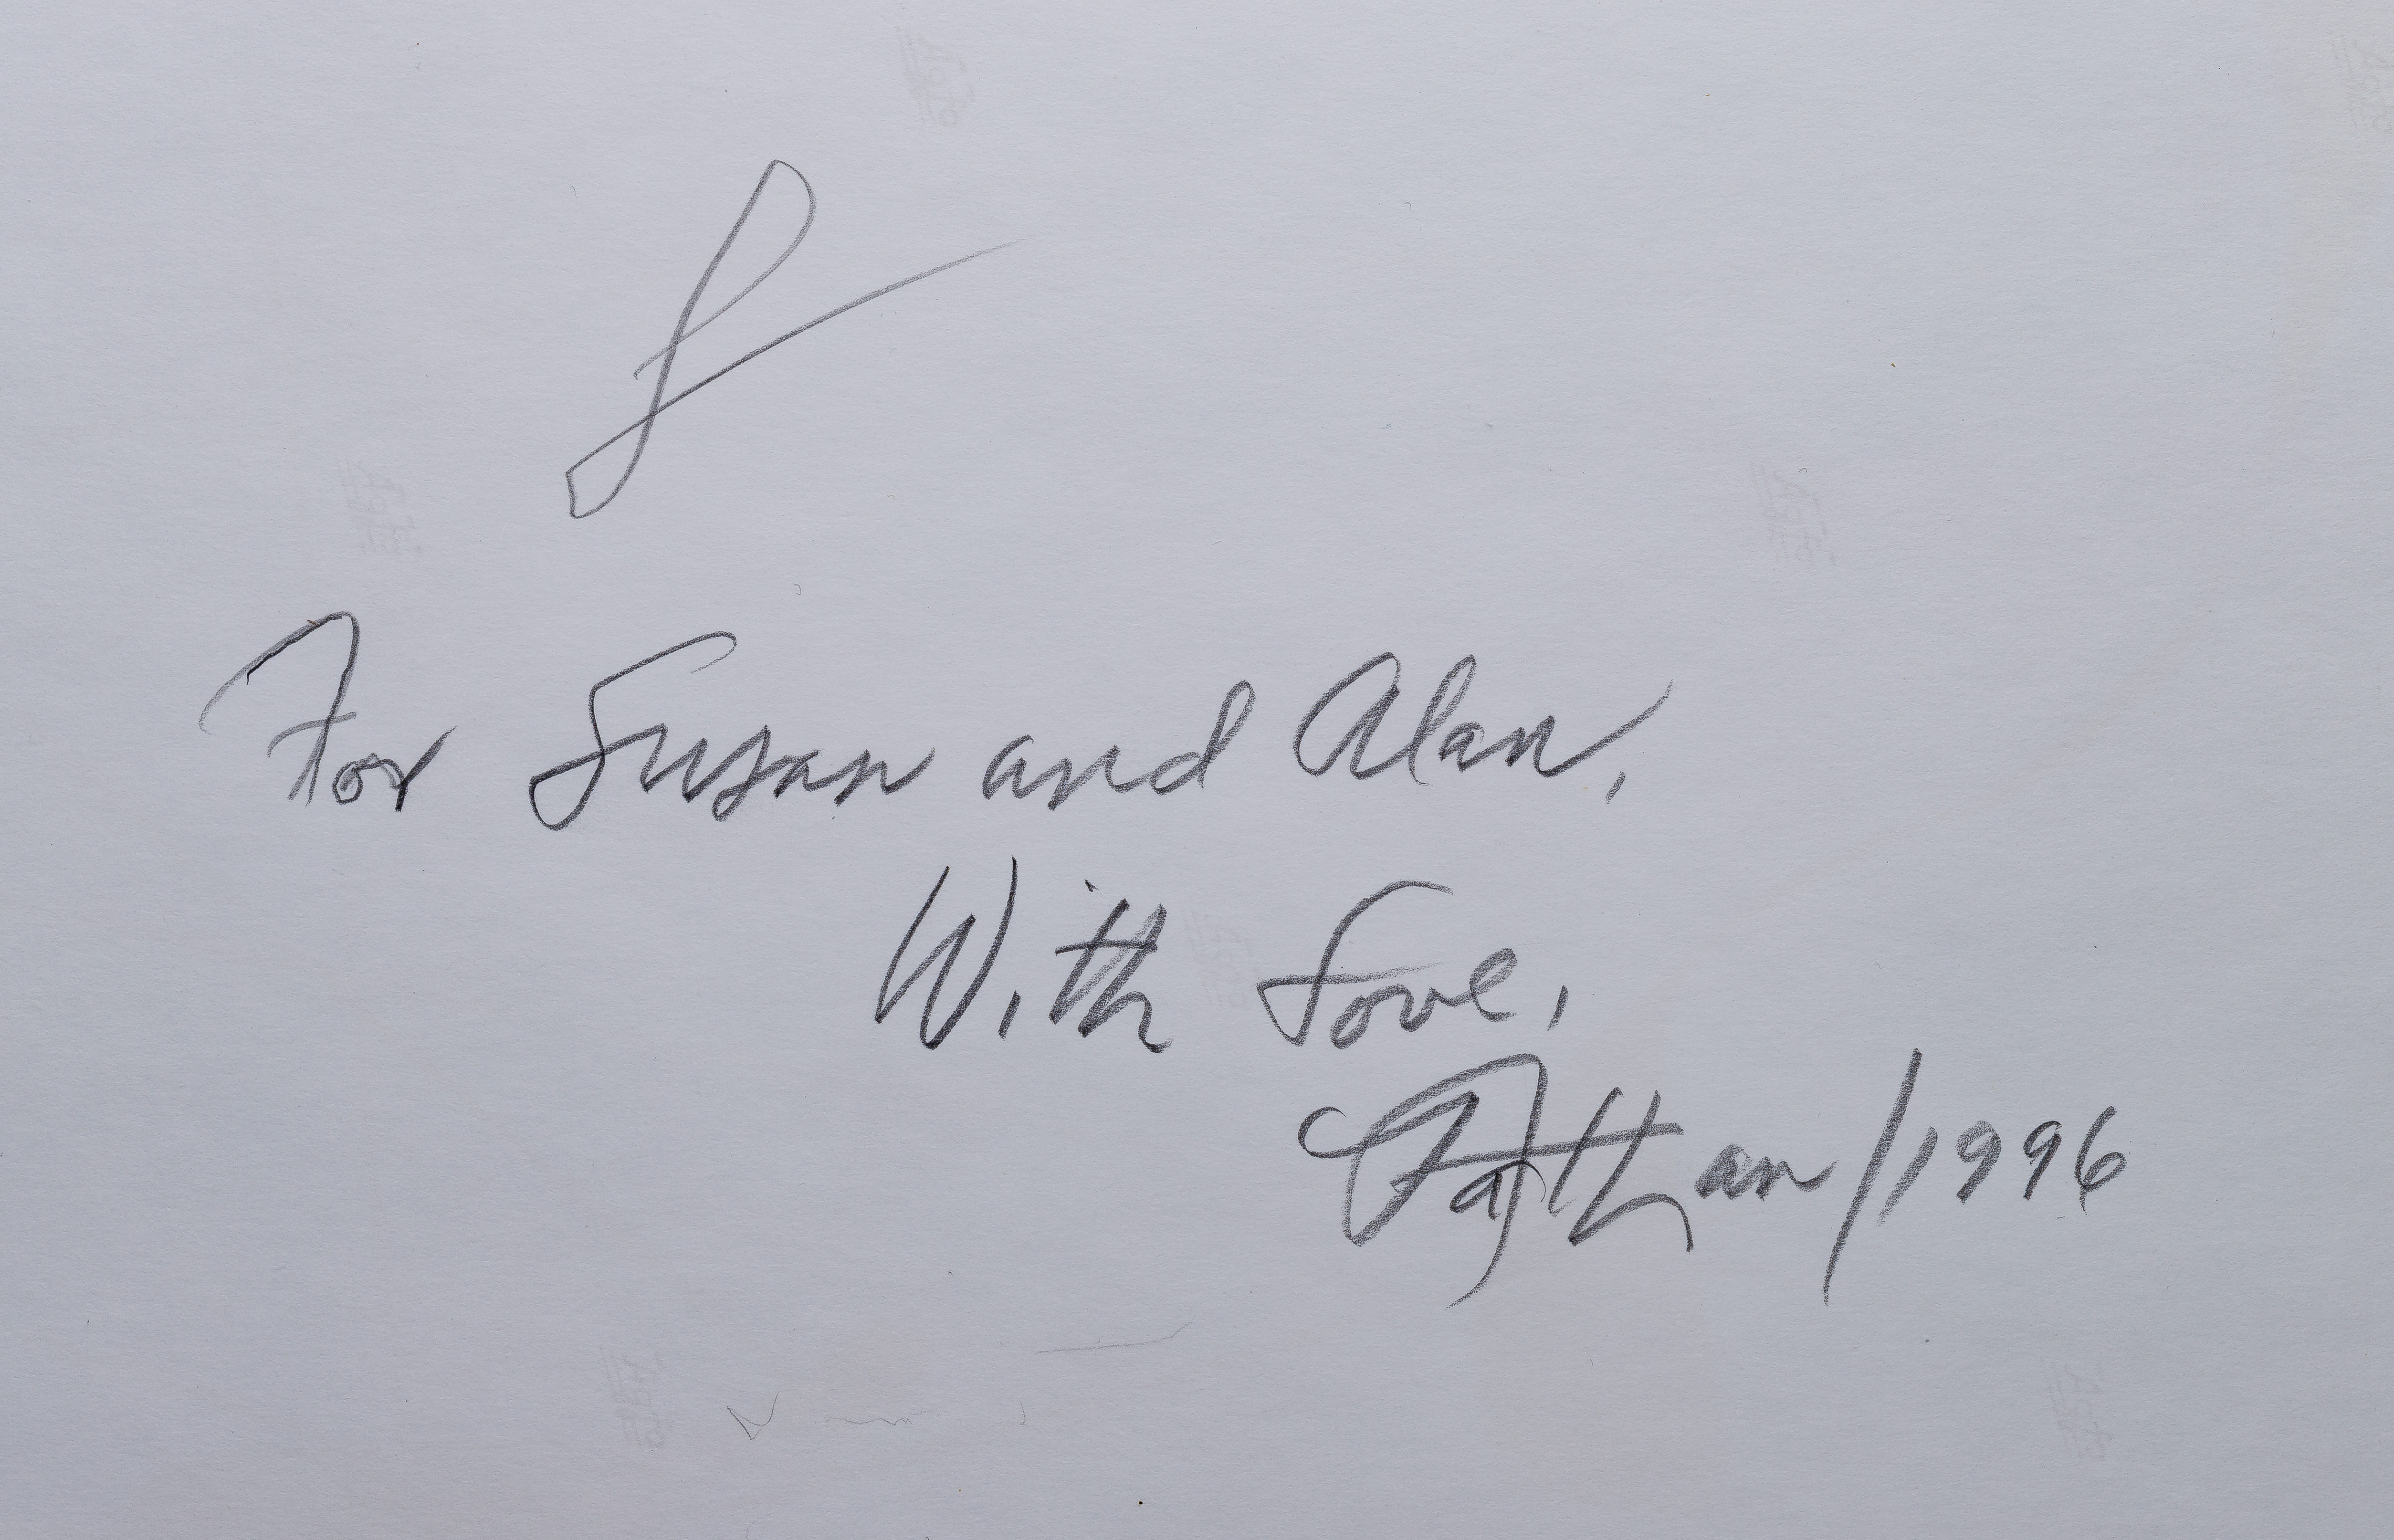 For Susan and Alan,
With Love,
Nathan/1996